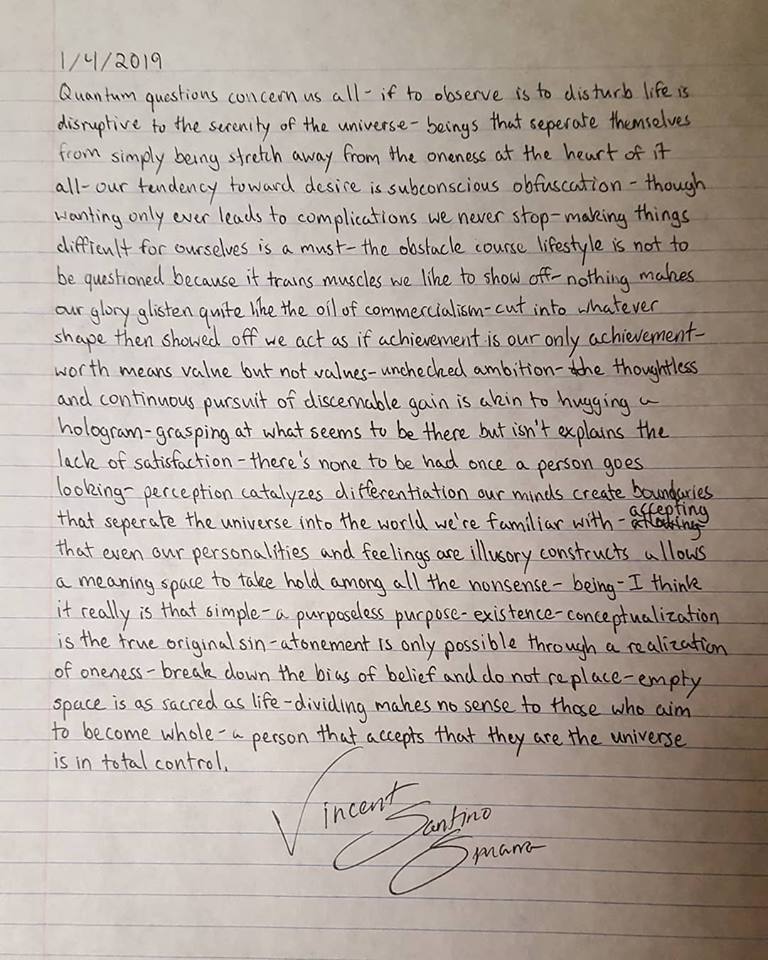 1/4/2019
Quantum questions concern us all - if to observe is to disturb life is
disruptive to the serenity of the universe - beings that seperate themselves
from simply being stretch away from the oneness at the heart of it
all - our tendency toward desire is subconscious obfuscation - though
wanting only ever leads to complications we never stop - making things
difficult for ourselves is a must - the obstacle course lifestyle is not to
be questioned because it trains muscles we like to show off - nothing makes
our glory glisten quite like the oil of commercialism - cut into whatever
shape then showed off we act as if achievement is our only achievement -
worth means value but not values - unchecked ambition - the thoughtless
and continuous pursuit of discernable gain is akin to hugging a
hologram - grasping at what seems to be there but isn't explains the
lack of satisfaction - there's none to be had once a person goes
looking - perception catalyzes differentiation our minds create boundaries
that seperate the universe into the world we're familiar with - accepting
that even our personalities and feelings are illusory constructs allows
a meaning space to take hold among all the nonsense - being - I think
it really is that simple - a purposeless purpose - existence - conceptualization
is the true original sin - atonement is only possible through a realization
of oneness - break down the bias of belief and do not replace - empty
space is as sacred as life - dividing makes no sense to those who aim
to become whole - a person that accepts that they are the universe
is in total control.
Vincent
Santino